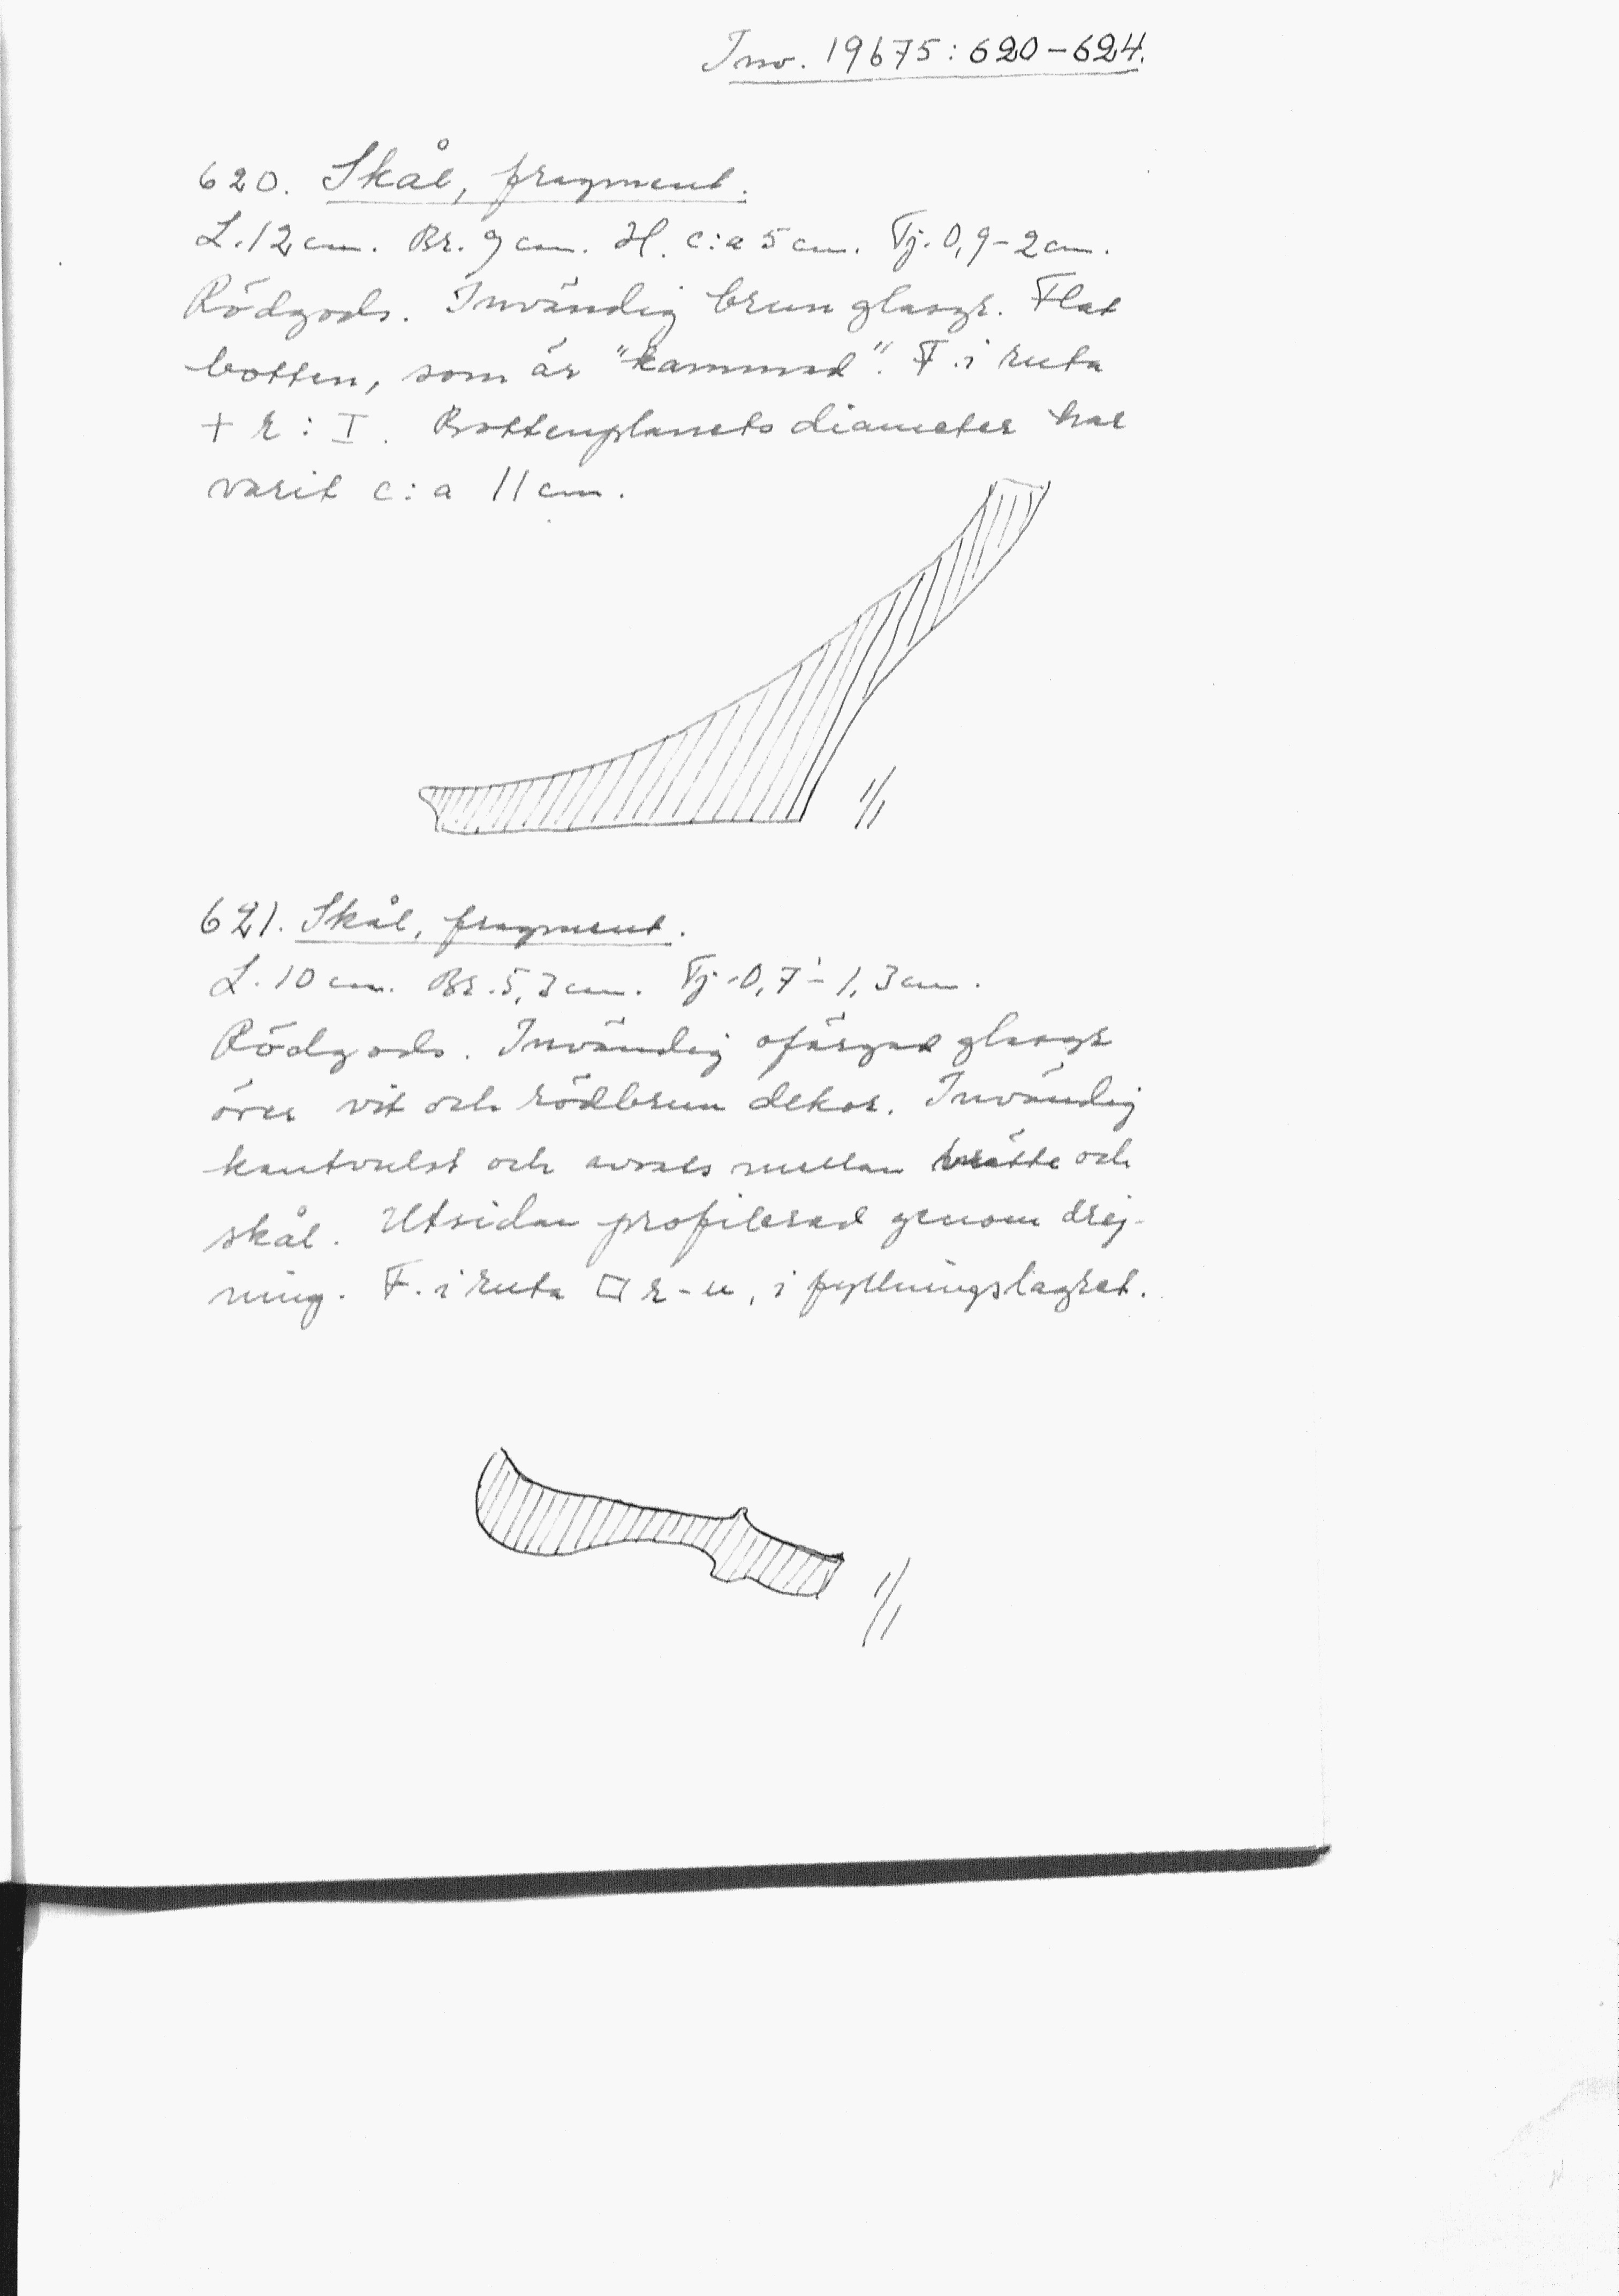 Inv. 19675:620-624.
620. Skål, fragment.
L. 12 cm. Br. 9 cm. H. c:a 5 cm. Tj. 0,9-2 cm.
Rödgods. Invändig brun glasyr. Flat
botten, som är "kammad". F. i ruta
+ r : I. Bottenplanets diameter har
varit c:a 11 cm.
1/1
621. Skål, fragment.
L. 10 cm. Br. 5,3 cm. Tj. 0,7-1,3 cm.
Rödgods. Invändig ofärgad glasyr
över vit och rödbrun dekor. Invändig
kantvulst och avsats mellan brätte och
skål. Utsidan profilerad genom drej-
ning. F. i ruta □ r-u, i fyllningslagret.
1/1